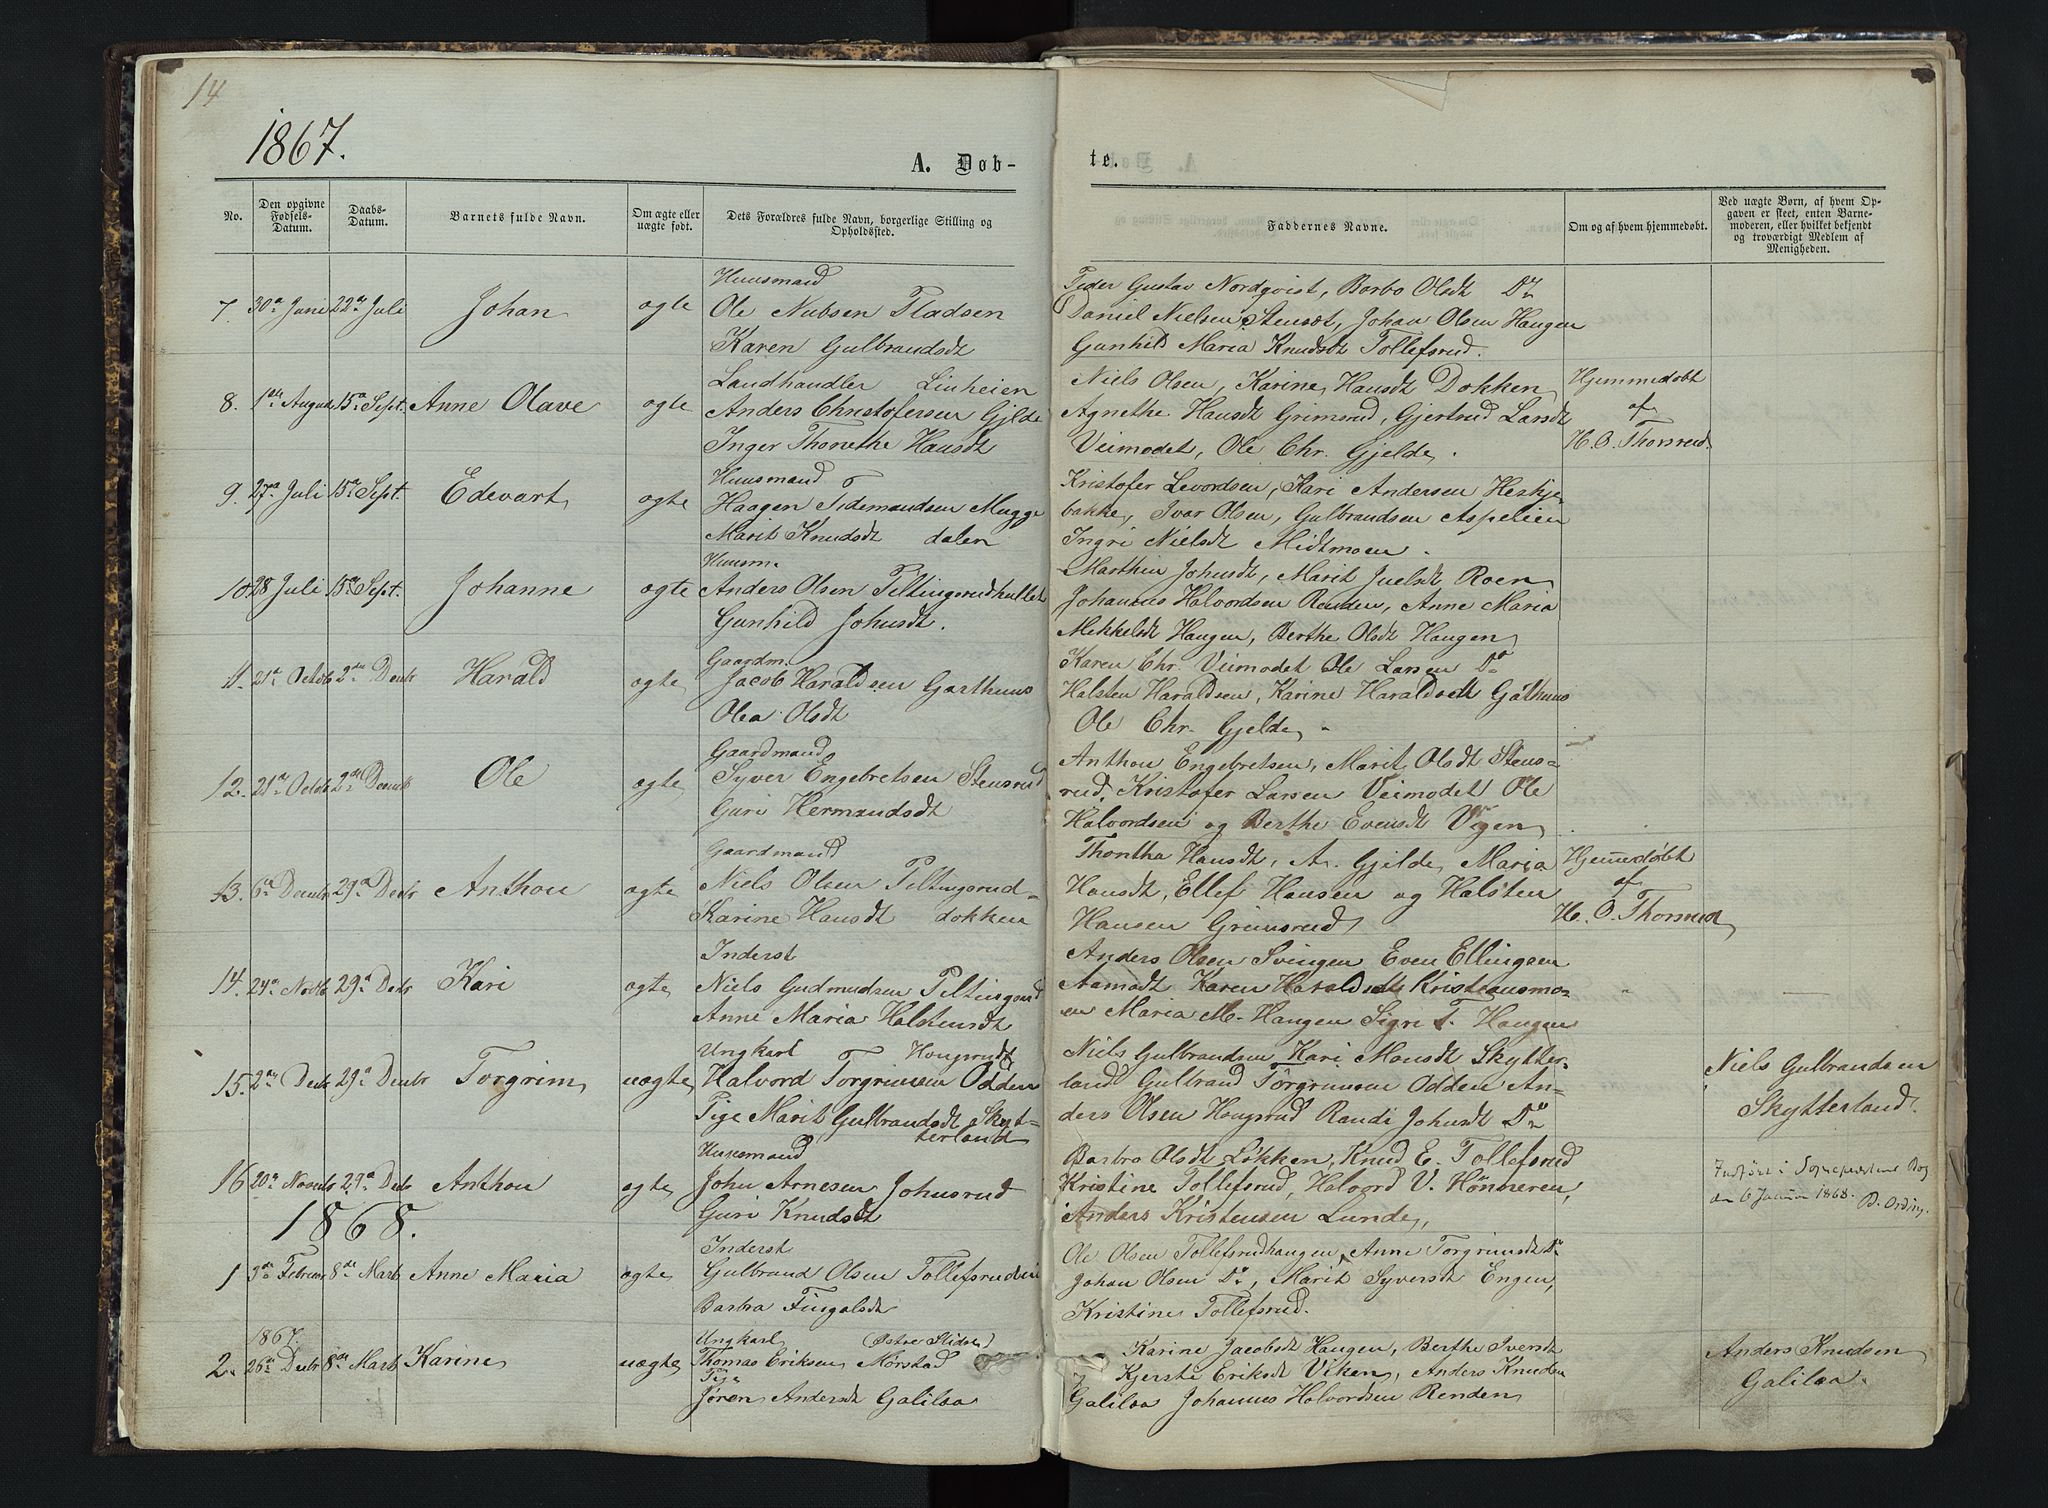 14
1867.
A. Døb-
te.
No.
Den opgivne Fødsels-Datum.
Daabs-Datum.
Barnets fulde Navn.
Om ægte eller uægte født.
Dets Forældres fulde Navn, borgerlige Stilling og Opholdssted.
Faddernes Navne.
Om og af hvem hjemmedøbt.
Ved uægte Børn, af hvem Opgaven er skeet, enten Barnemoderen, eller hvilket bekjendt og troværdigt Medlem af Menigheden.
Huusmand
7. 30te Juni 22de Juli Johan ægte Ole Nubsen Pladsen
Karen Gulbrandsdt
Peder Gustav Nordqvist, Barbo Olsdt Do
Daniel Nielsen Stensæt, Johan Olsen Haugen
Gunhild Maria Knudsdt Tollefsrud.
Landhandler Linheien
8. 1ste August 15de Sept. Anne Olave ægte Anders Christofersen Gjelde
Inger Thonethe Hansdt
Niels Olsen, Karine Hansdt Dokken
Agnethe Hansdt Grimsrud, Gjertrud Larsdt
Viemodet, Ole Chr. Gjelde.
Hjemmedøbt
af
H. O. Thorsrud
Huusmand
9. 27de Juli 15de Sept. Edevart ægte Haagen Tidemandsen Mugge
Marit Knudsdt dalen
Kristofer Levordsen, Kari Andersen Heskje-
bakke, Ivar Olsen, Gulbrandsen Aspelien
Ingri Nielsdt Midtmoen.
Huusm.
10. 28 Juli 15de Sept. Johanne ægte Anders Olsen Peltingsrudhullet
Gunhild Johnsdt.
Marthin Johnsdt, Marit Juelsdt Roen
Johannes Halvordsen Renden, Anne Maria
Mekkelsdt Haugen, Berthe Olsdt Haugen
Gaardm.
11. 21de Octob 2den Decbr Harald ægte Jacob Haraldsen Garthuus
Olea Olsdt
Karen Chr. Viemodet Ole Larsen Do
Halsten Haraldsen, Karine Haraldsdt Gathuus
Ole Chr. Gjelde.
Gaardmand
12. 21de Octob 2den Decemb Ole ægte Syver Engebretsen Stensrud
Guri Hermandsdt
Anthon Engebretsen, Marit Olsdt Stens-
rud, Kristofer Larsen Viemodet Ole
Halvordsen og Berthe Evensdt Vegen
Gaardmand
13. 6te Decmbr 29de Decbr Anthon ægte Niels Olsen Peltingsrud-
Karine Hansdt dokken
Thontha Hansdt, A. Gjelde, Maria
Hansdt, Ellef Hansen og Halsten
Hansen Grimsrud
Hjemmedøbt
af
H. O. Thorsrud
Inderst
14. 24de Novb 29de Decbr Kari ægte Niels Gudmudsen Peltingsrud
Anne Maria Halstensdt
Anders Olsen Svingen Even Ellingsen
Aamodt Karen Haraldsdt Kristensmo-
en Maria M. Haugen Sigri T. Haugen
Ungkarl Hougsrudt
15. 2den Decbr 29de Decbr Torgrim uægte Halvord Torgrimsen Odden
Pige Marit Gulbrandsdt Skyt-
terland
Niels Gulbrandsen Kari Monsdt Skytter-
land Gulbrand Torgrimsen Odden An-
ders Olsen Hougsrud Randi Johnsdt Do
Niels Gulbrandsen
Skytterland.
Huusmand
16 20de Novbr 29de Decbr Anthon ægte John Arnesen Johnsrud
Guri Knudsdt
Barbra Olsdt Løkken, Knud E. Tollefsrud
Kristine Tollefsrud, Halvord V. Hønneren,
Anders Kristensen Lunde,
Indført i Sognepræstens Bog
den 6 Januar 1868.
1868.
Inderst
1 3die Februar 8de Marts Anne Maria ægte Gulbrand Olsen Tollefsrudeie
Barbra Fingalsdt
Ole Olsen Tollefsrudhaugen, Anne Torgrimsdt Do
Johan Olsen Do, Marit Syversdt Engen,
Kristine Tollefsrud.
1867. Ungkarl (Østre Slidre)
2. 26de Decbr 8de Marts Karine uægte Thomas Eriksen Mørstad
Pige
Jøren Andersdt Galilæa
Karine Jacobsdt Haugen, Berthe Svendt
Kjersti Eriksdt Viken, Anders Knudsen
Galilæa Johannes Halvordsen Renden
Anders Knudsen
Galilæa.